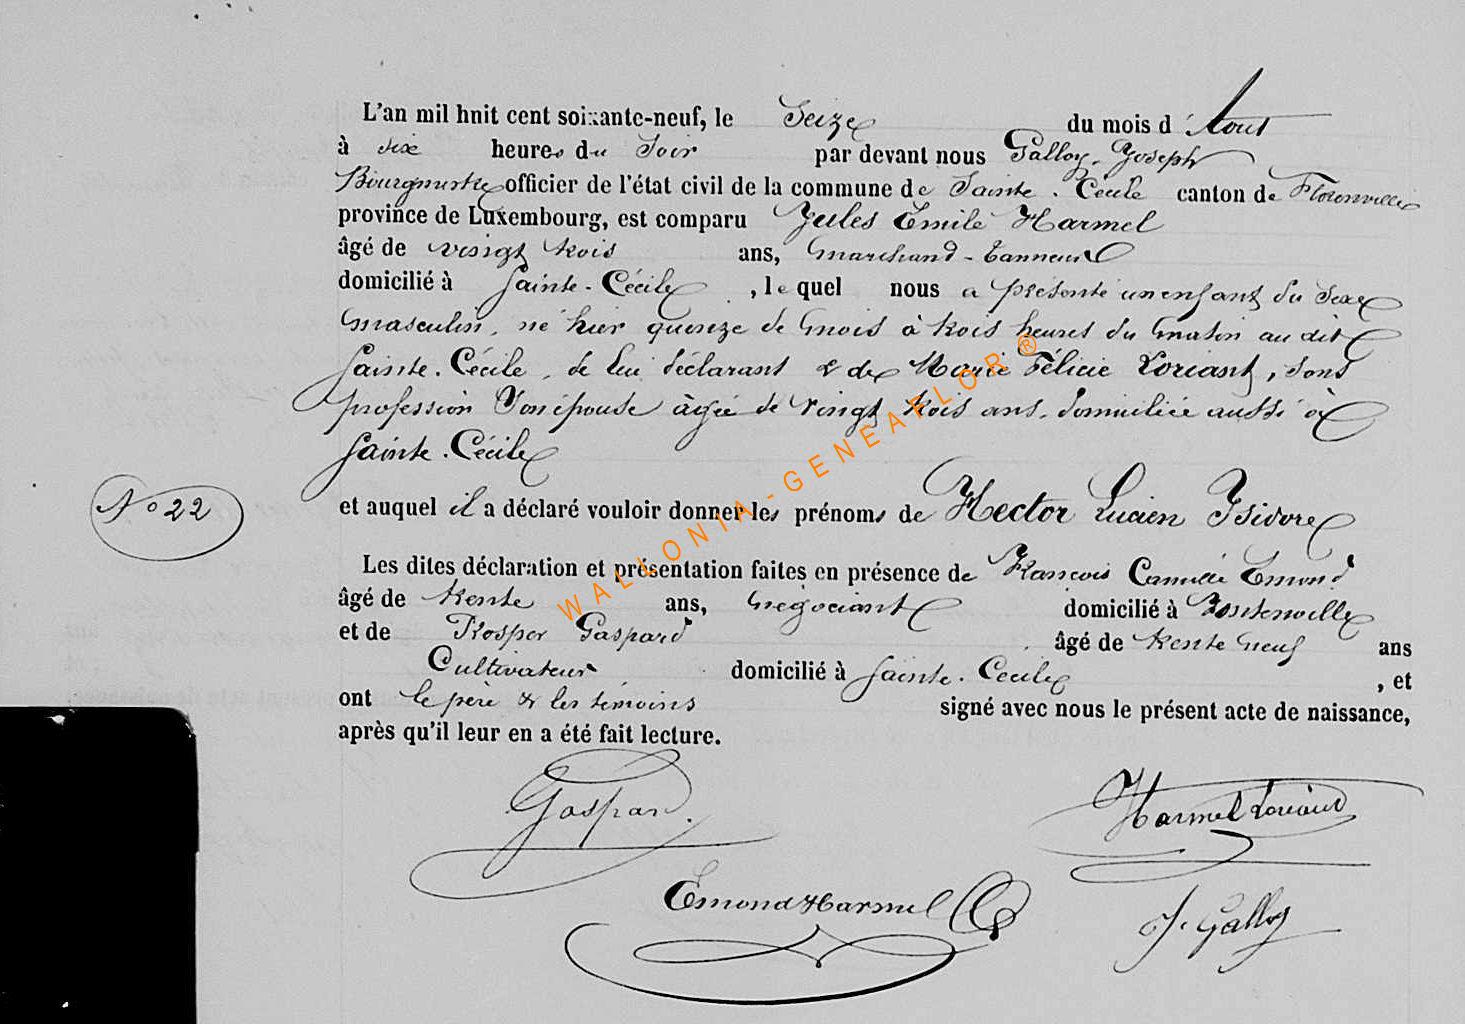 L'an mil huit cent soixante-neuf, le Seize du mois d'Aout
à six heures du Soir par devant nous Galloy, Joseph
Bourgmestre officier de l'état civil de la commune de Sainte-Cécile canton de Florenville
province de Luxembourg, est comparu Jules Emile Harmel
âgé de vingt trois ans, marchand-tanneur
domicilié à Sainte-Cécile, lequel nous a présenté un enfant du sexe
masculin, né hier quinze de mois à trois heures du matin au dit
Sainte-Cécile, de lui déclarant & de Marie Félicie Loriant, sans
profession son épouse âgée de vingt trois ans, domiciliée aussi à
Sainte-Cécile
N° 22
et auquel il a déclaré vouloir donner les prénoms de Hector Lucien Isidore
Les dites déclaration et présentation faites en présence de Francois Camille Emond
âgé de trente ans, négociant domicilié à Fontenoille
et de Prosper Gaspard âgé de trente neuf ans
Cultivateur domicilié à Sainte-Cécile, et
ont le père & les témoins signé avec nous le présent acte de naissance,
après qu'il leur en a été fait lecture.
Gaspard.
Harmel Loriant
Emond Harmel
J. Galloy
WALLONIA-GENEAFLOR®